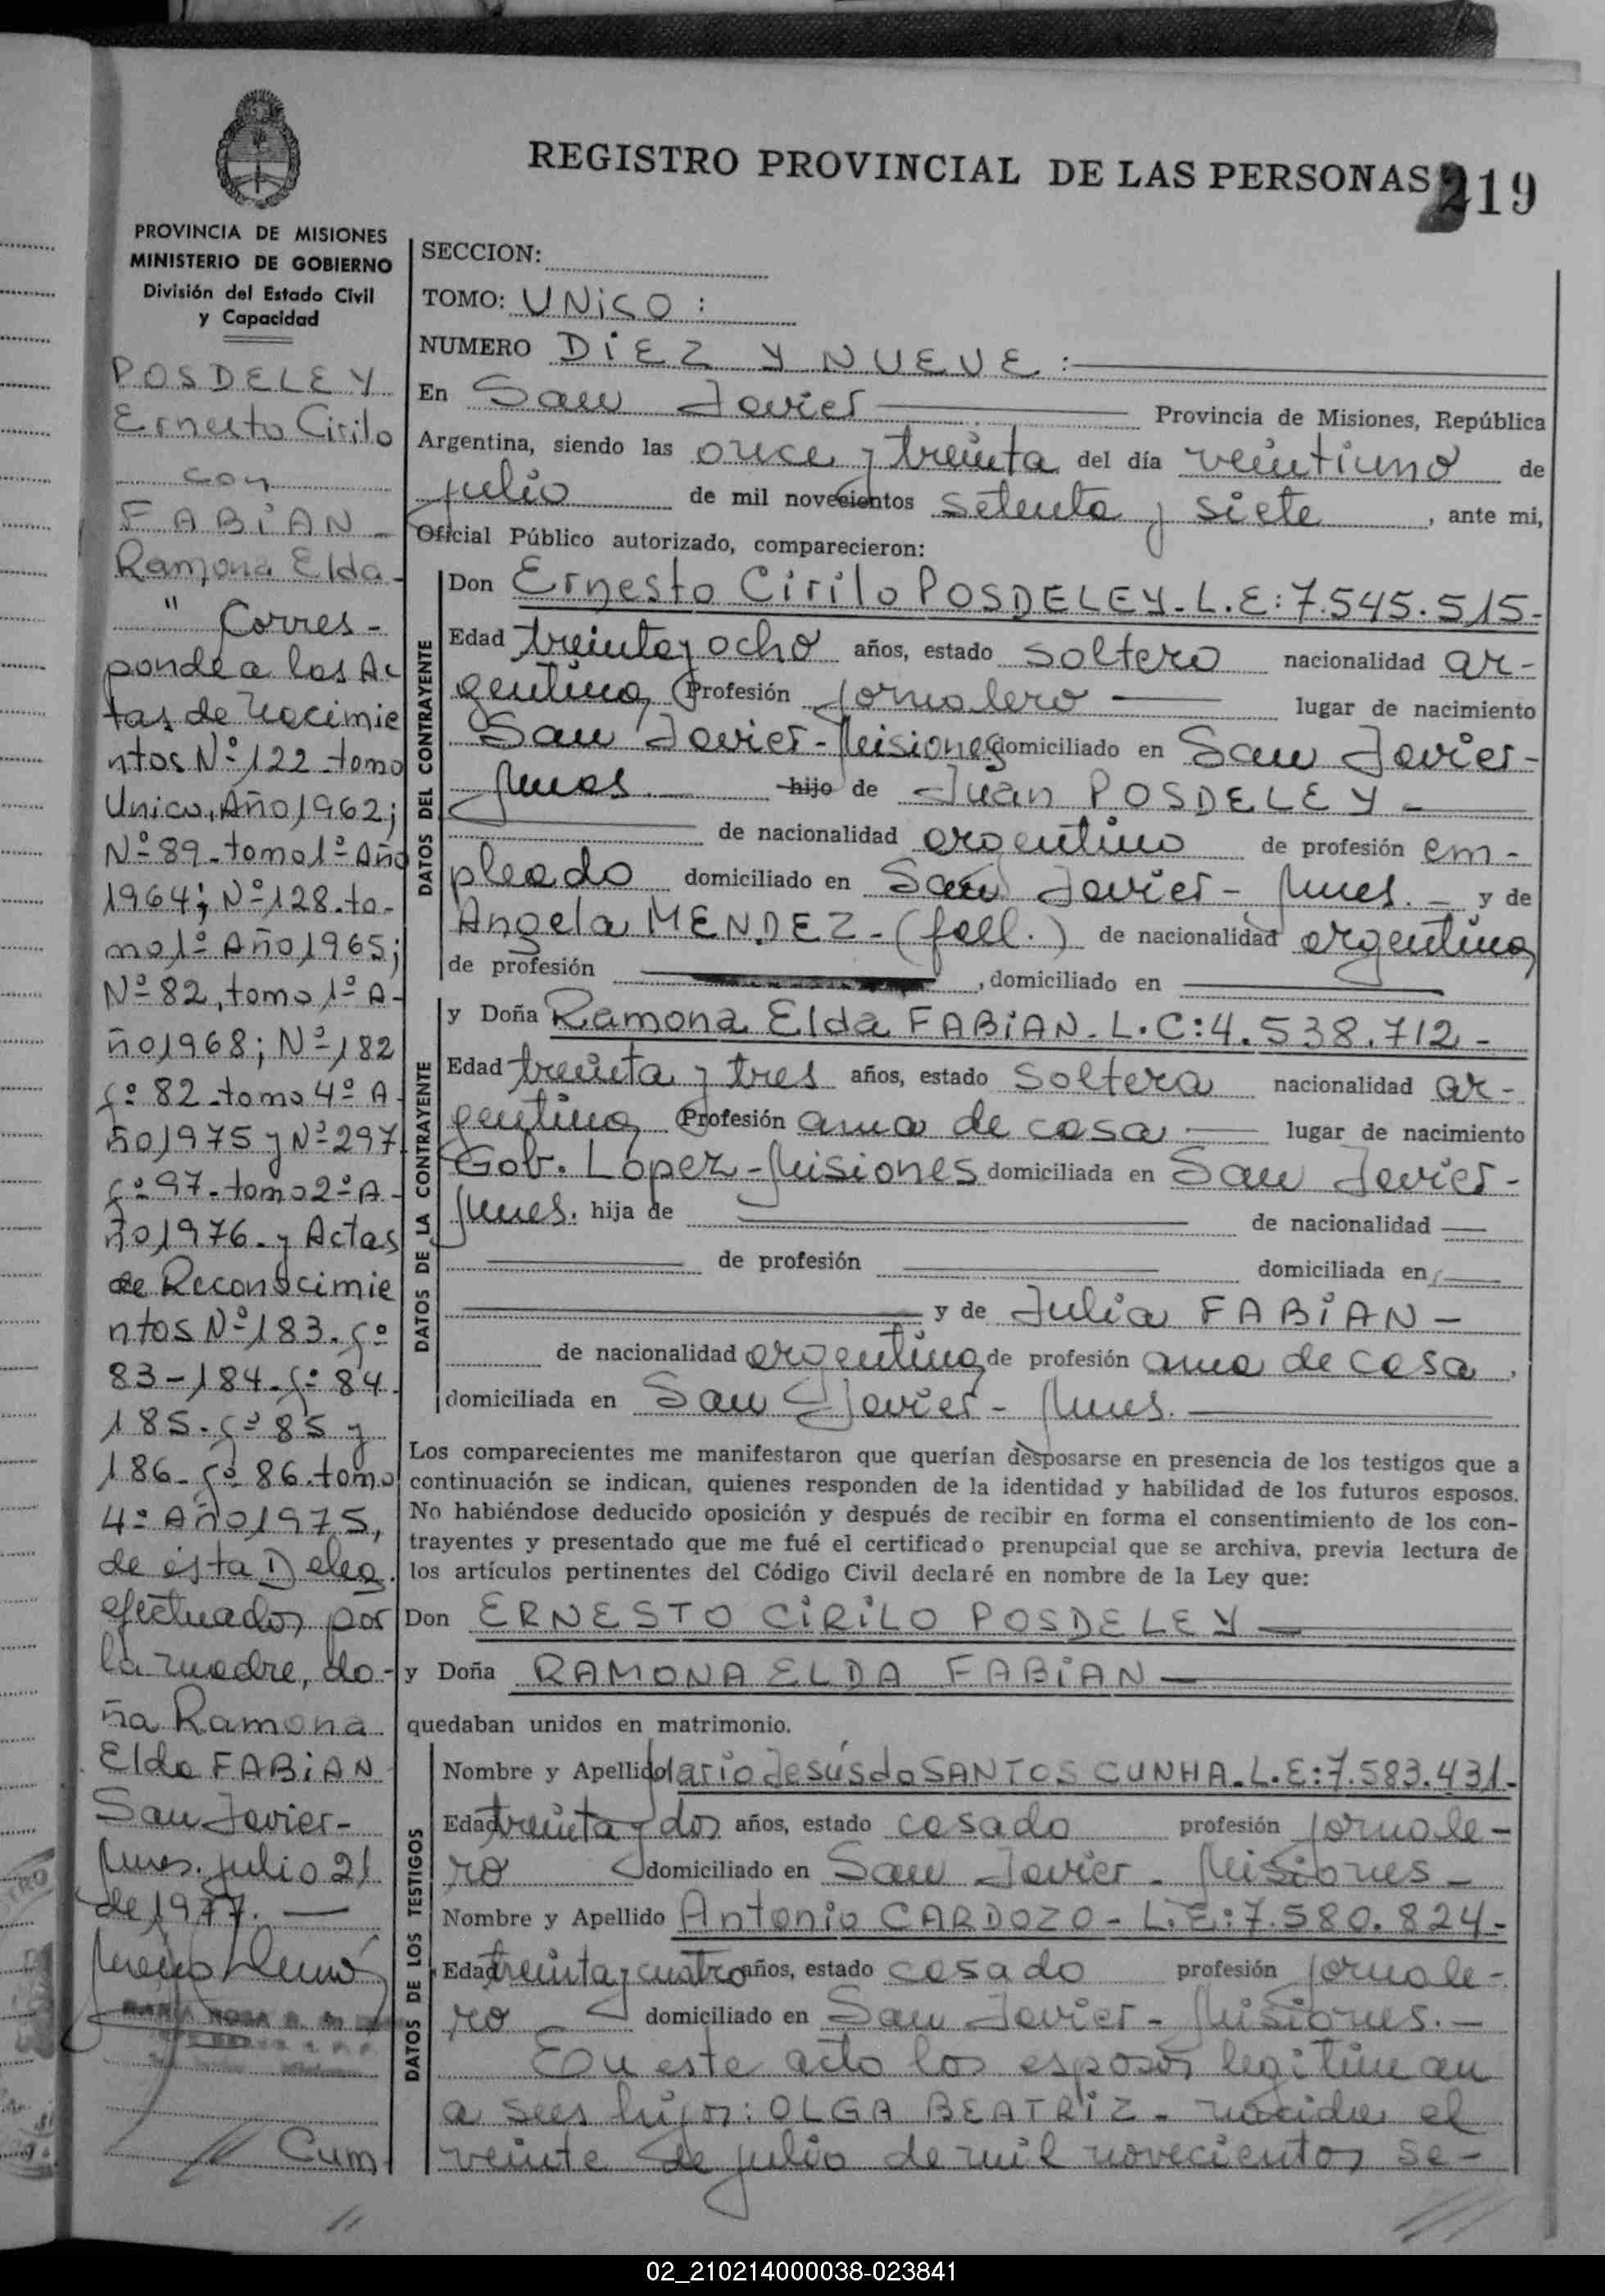 REGISTRO PROVINCIAL DE LAS PERSONAS 219
PROVINCIA DE MISIONES
MINISTERIO DE GOBIERNO
División del Estado Civil
y Capacidad
POSDELEY
Ernesto Cirilo
con
FABIAN
Ramona Elda-
" Corres-
ponde a las Ac
tas de Nacimie
ntos Nº 122-tomo
Unico, Año 1962;
Nº 89-tomo 1º Año
1964; Nº 128-to-
mo 1º Año 1965;
Nº 82, tomo 1º A-
ño 1968; Nº 182
fº 82-tomo 4º A-
ño 1975 y Nº 297
fº 97-tomo 2º A-
ño 1976-y Actas
de Reconocimie
ntos Nº 183-fº
83-184-fº 84-
185-fº 85 y
186-fº 86-tomo
4º Año 1975,
de ésta Deleg.
efectuados por
la madre, do-
ña Ramona
Elda FABIAN
San Javier-
Mnes. julio 21
de 1977.
MARIA ROSA
Cum
SECCION:
TOMO: UNICO :
NUMERO DIEZ Y NUEVE :
En San Javier Provincia de Misiones, República
Argentina, siendo las once y treinta del día veintiuno de
julio de mil novecientos setenta y siete, ante mi,
Oficial Público autorizado, comparecieron:
DATOS DEL CONTRAYENTE
Don Ernesto Cirilo POSDELEY-L.E:7.545.515-
Edad treinta y ocho años, estado soltero nacionalidad ar-
gentina, Profesión Jornalero lugar de nacimiento
San Javier-Misiones domiciliado en San Javier-
Mnes. hijo de Juan POSDELEY-
de nacionalidad argentino de profesión em-
pleado domiciliado en San Javier- Mnes.- y de
Angela MENDEZ-(fall.) de nacionalidad argentina,
de profesión , domiciliado en
DATOS DE LA CONTRAYENTE
y Doña Ramona Elda FABIAN-L.C:4.538.712-
Edad treinta y tres años, estado soltera nacionalidad ar-
gentina, Profesión ama de casa lugar de nacimiento
Gob. López-Misiones domiciliada en San Javier-
Mnes. hija de de nacionalidad
de profesión domiciliada en
y de Julia FABIAN-
de nacionalidad argentina, de profesión ama de casa,
domiciliada en San Javier- Mnes.
Los comparecientes me manifestaron que querían desposarse en presencia de los testigos que a
continuación se indican, quienes responden de la identidad y habilidad de los futuros esposos.
No habiéndose deducido oposición y después de recibir en forma el consentimiento de los con-
trayentes y presentado que me fué el certificado prenupcial que se archiva, previa lectura de
los artículos pertinentes del Código Civil declaré en nombre de la Ley que:
Don ERNESTO CIRILO POSDELEY
y Doña RAMONA ELDA FABIAN
quedaban unidos en matrimonio.
DATOS DE LOS TESTIGOS
Nombre y Apellido Mario Jesús do SANTOS CUNHA-L.E:7.583.431-
Edad treinta y dos años, estado casado profesión jornale-
ro domiciliado en San Javier- Misiones-
Nombre y Apellido Antonio CARDOZO-L.E:7.580.824-
Edad treinta y cuatro años, estado casado profesión jornale-
ro- domiciliado en San Javier- Misiones.-
En este acto los esposos legitiman
a sus hijos: OLGA BEATRIZ- nacida el
veinte de julio de mil novecientos se-
02_210214000038-023841